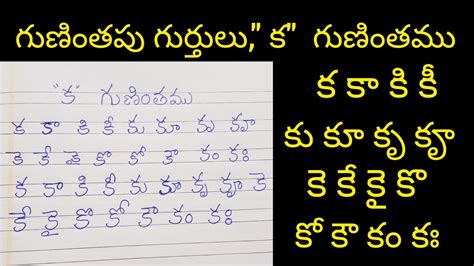 గుణింతపు గుర్తులు," క" గుణింతము
"క" గుణింతము
క కా కి కీ కు కూ కృ కౄ
కె కే కై కొ కో కౌ కం కః
క కా కి కీ కు కూ కృ కౄ కె
కే కై కొ కో కౌ కం కః
క కా కి కీ
కు కూ కృ కౄ
కె కే కై కొ
కో కౌ కం కః